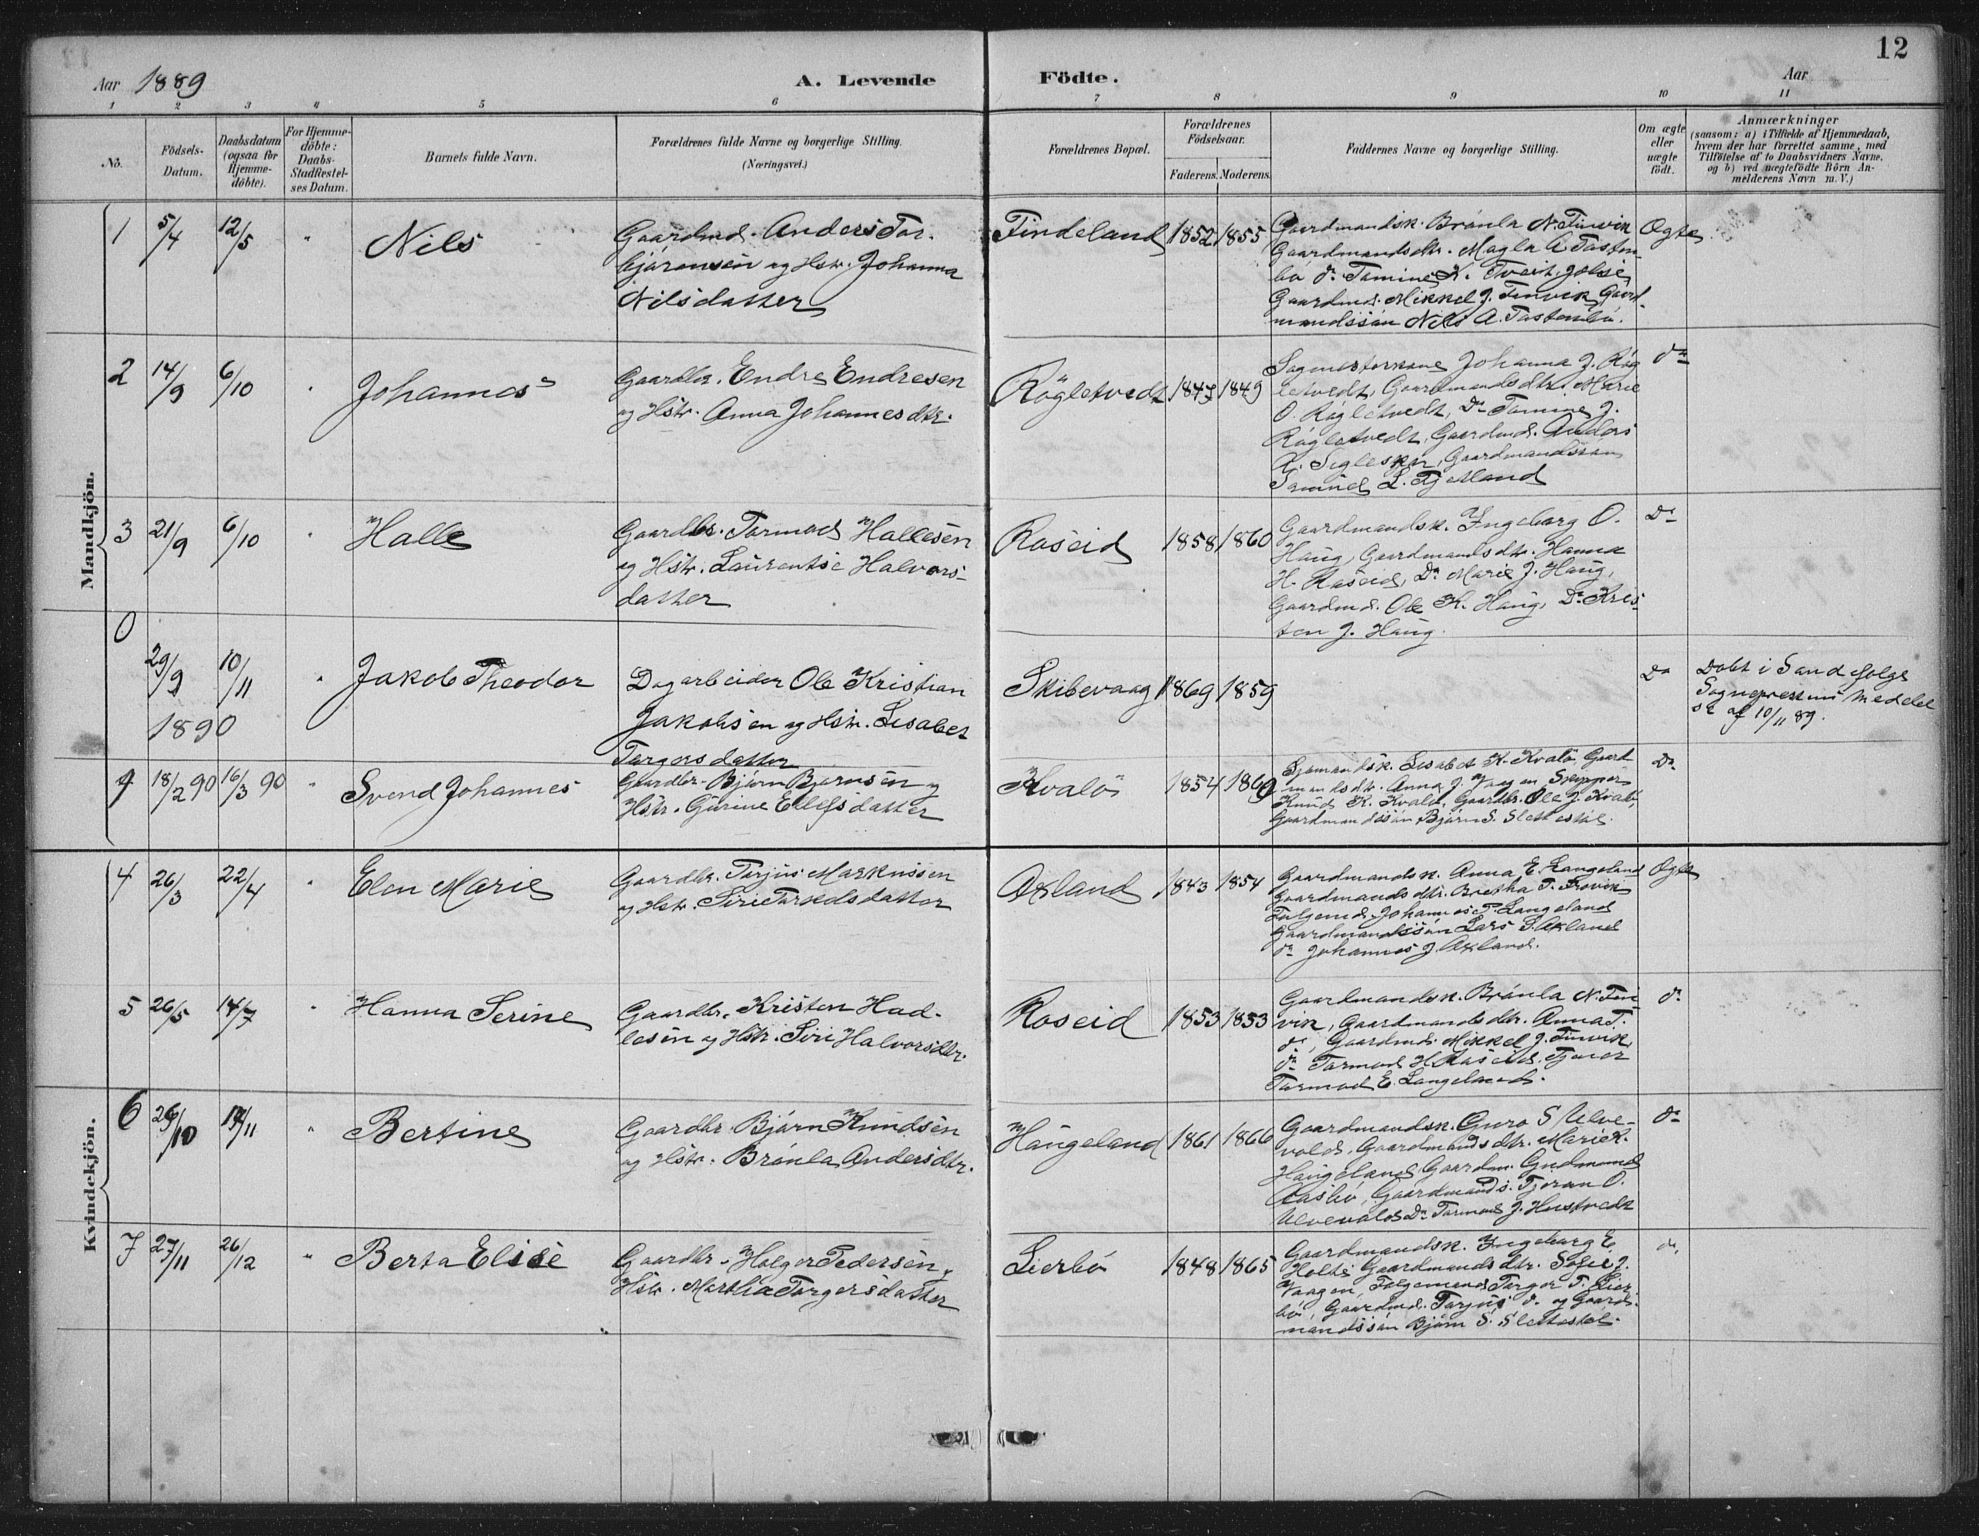 12
Aar 1889 A. Levende Födte. Aar
1 2 3 4 5 6 7 8 9 10 11
No. Födsels-Datum. Daabsdatum (ogsaa for Hjemmedöbte). For Hjemmedöbte: Daabs-Stadfestelses Datum. Barnets fulde Navn. Forældrenes fulde Navne og borgerlige Stilling. (Næringsvei.) Forældrenes Bopæl. Forældrenes Födselsaar. Faderens. Moderens. Faddernes Navne og borgerlige Stilling. Om ægte eller uægte födt. Anmærkninger (saasom: a) i Tilfælde af Hjemmedaab, hvem der har forrettet samme, med Tilföielse af to Daabsvidners Navne, og b) ved uægtefödte Börn Anmelderens Navn m. V.)
Mandkjön.
1 5/4 12/5 " Nils
Gaardmd. Anders Tor-
bjørensen og Hstr. Johanna
Nilsdatter
Findeland 1852 1855
Gaardmandsk. Brønla N. Tinvik
Gaardmandsdtr. Magla A Fasten-
bø do Tomine K. Tveit, Jøkse
Gaardmd. Mikkel J. Tinvik, Gaard-
mandssøn Nils A. Fastenbø.
Ægte
2 14/9 6/10 " Johannes
Gaardbr. Endre Endresen
og Hstr. Anna Johannesdtr.
Rögletvedt 1847 1849
Johanna J. Røg-
letvedt, Gaardmandsdtr. Marie
O. Røgletvedt, Do Tomine J.
Røgletvedt, Gaardmd. Anders
Gaardmandssøn
do
3 21/9 6/10 " Halle
Gaardbr. Tormod Hallesen
og Hstr. Laurentse Halvors-
datter
Roseid 1858 1860
Gaardmandsk. Ingeborg O.
Haug, Gaardmandsdtr. Hanna
H. Raseid, Do Marie J. Haug,
Gaardmd. Ole K. Haug, Do Kris-
ten J. Haug.
Do
0 29/9 10/11 " Jakob Theodor
Dagarbeider Ole Kristian
Jakobsen og Hstr. Lisabet
Torgersdatter
Skibevaag 1869 1859
Do
Døbt i Sand ifølge
Sogneprestens Meddel
se af 10/11 89.
1890
4 18/2 90 16/3 90 " Svend Johannes
Gaardbr. Bjørn Bjørnsen og
Hstr. Gurine Ellefsdatter
Kvalö 1854 1869
Sjømandsk. Lisabet K. Kvalö, Gaard
mandsdtr. Anna J Vaagen Skipper
Knud K. Kvalö, Gaardbr. Ole J. Kvalö,
Gaardmandssøn Bjørn S. Slettestøl.
Do
Kvindekjön.
4 26/3 22/4 " Elen Marie
Gaardbr. Torjus Markussen
og Hstr. Siri Torkelsdatter
Oxland 1843 1854
Gaardmandsk. Anna E. Langeland
Gaardmandsdtr. Bertha T. Frøvik
Følgemd. Johannes P. Langeland
Gaardmandssøn Lars S. Oxland
do Johannes J. Oxland.
Ægte
5 26/5 14/7 " Hanna Serine
Gaardbr. Kristen Had-
lesen og Hstr. Siri Halvorsdtr.
Roseid 1853 1853
Gaardmandsk. Brønla N. Tin-
vik, Gaardmandsdtr. Anna T.
do, Gaardmd. Mikkel J. Tinvik,
do Tormod H. Raseid, Tjener
Tormod E. Langeland.
do
6 /10 /11 " Bertine
Gaardbr. Bjørn Knudsen
og Hstr. Brønla Andersdtr.
Haugeland 1861 1866
Gaardmandsk. Guro S Ulve-
vold, Gaardmandsdtr. Marie K.
Haugeland, Gaardm. Gudmund
Aasbø, Gaardmands. Tjøran O.
Ulvevold Do Tormod J. Hustvedt
do
7 27/11 26/12 " Berta Elise
Gaardbr. Holger Pedersen,
Hstr. Martha Torgersdatter
Lierbö 1848 1865
Gaardmandsk. Ingeborg E
Holte Gaardmandsdtr. Sofie J.
Vaagen, Følgemand Torger T. Lier-
bø, Gaardmd. Torjus do og Gaard-
mandssøn Bjørn S. Slettestøl.
do